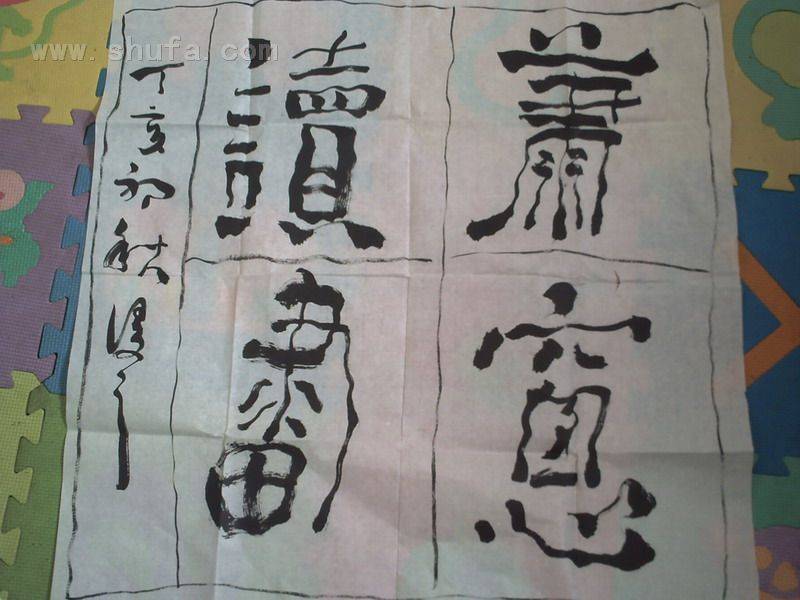 www.shufa.com
蕭窻
讀畵
丁亥初秋